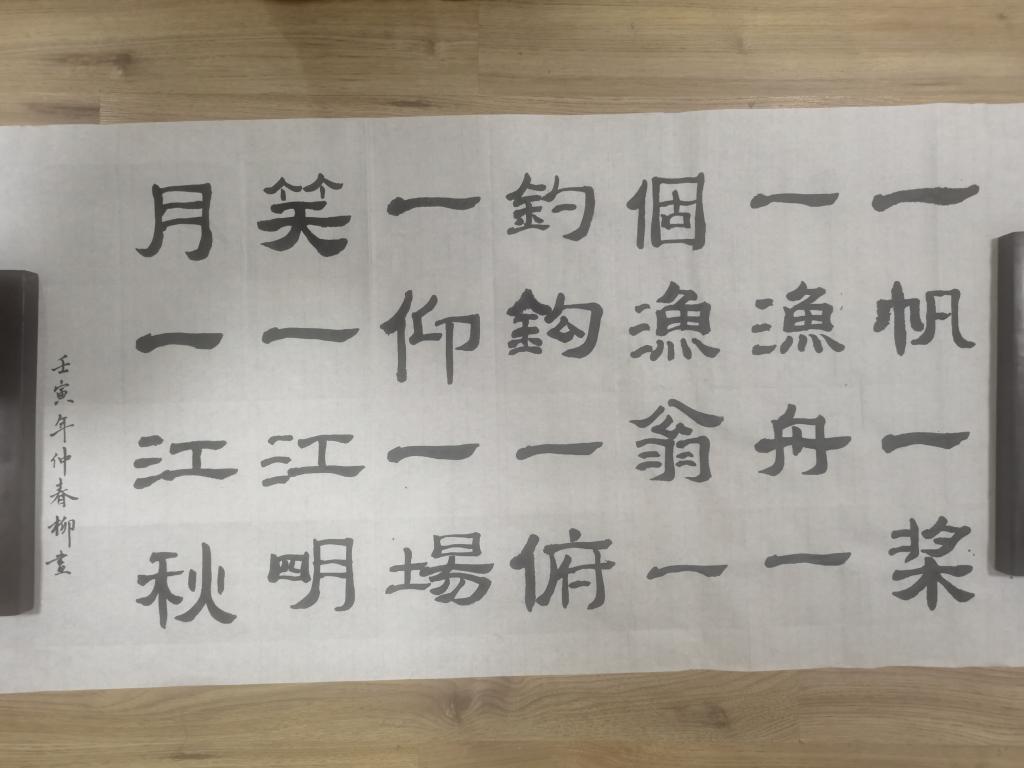 一帆一桨
一漁舟一
個漁翁一
釣鈎一俯
一仰一場
笑一江明
月一江秋
壬寅年仲春柳書